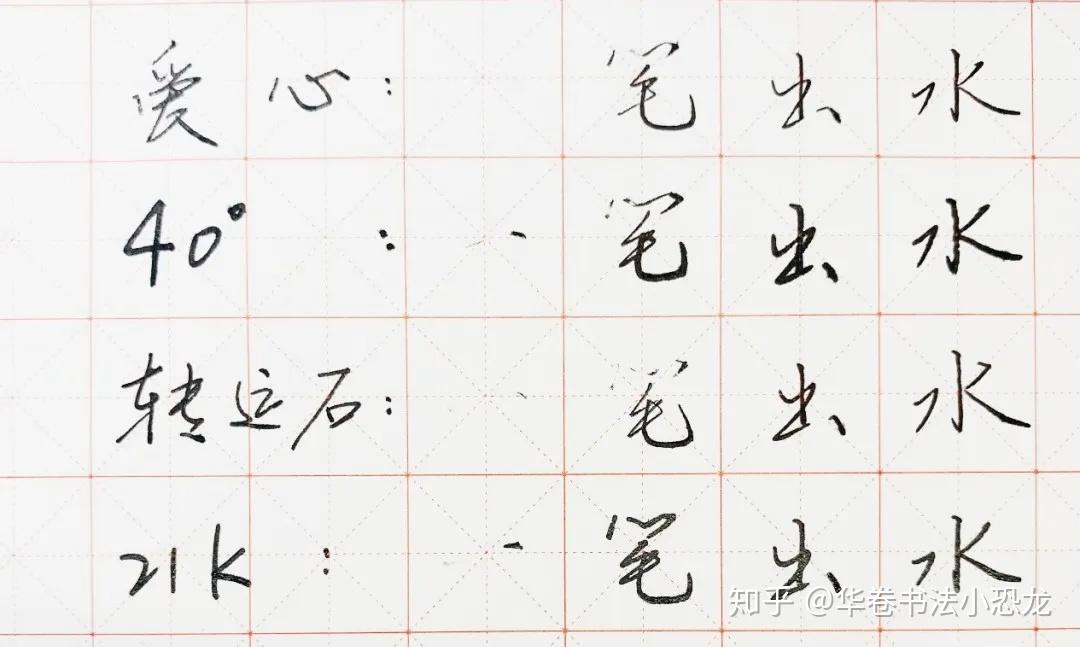 爱心: 笔出水
40°: 、笔出水
转运石: 、笔出水
21K: 、笔出水
知乎 @华卷书法小恐龙